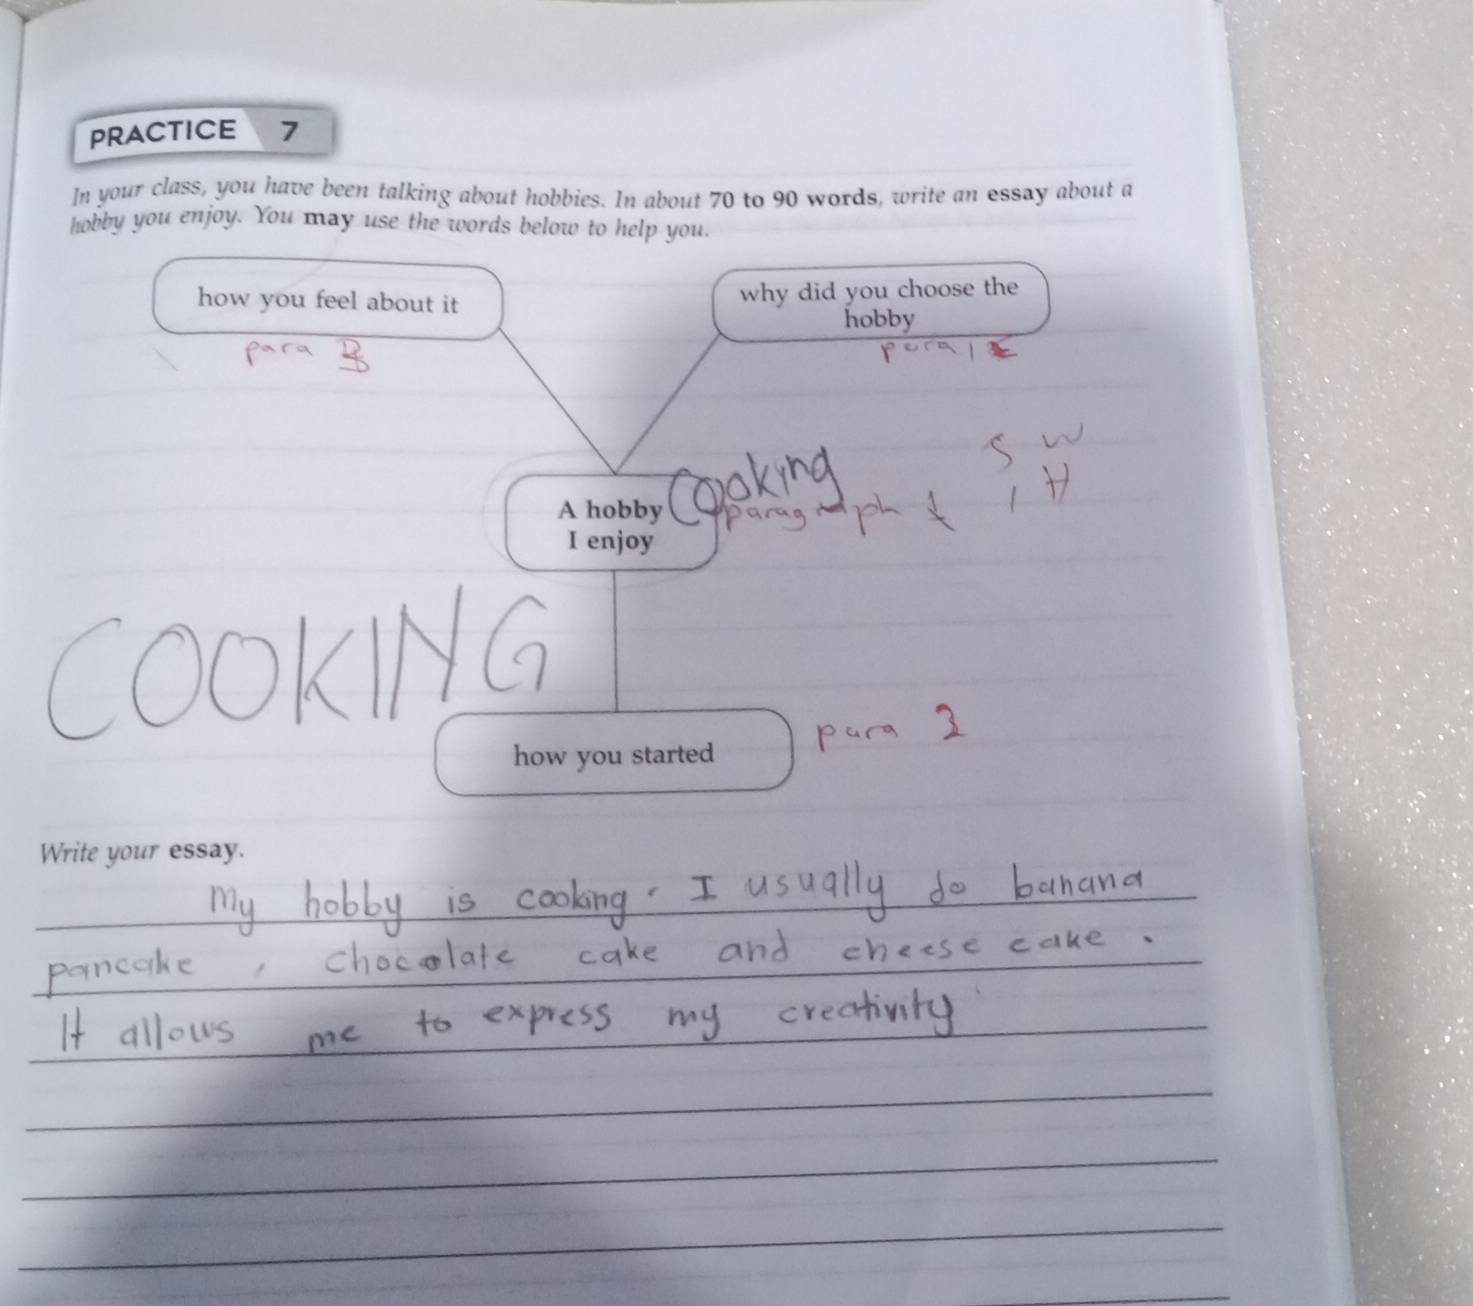 PRACTICE 7
In your class, you have been talking about hobbies. In about 70 to 90 words, write an essay about a
hobby you enjoy. You may use the words below to help you.
how you feel about it
why did you choose the
hobby
para 3
para 1
S W
1 H
Cooking
A hobby
I enjoy
paragraph 1
COOKING
how you started
para 2
Write your essay.
My hobby is cooking. I usually do banana
pancake, chocolate cake and cheese cake.
It allows me to express my creativity